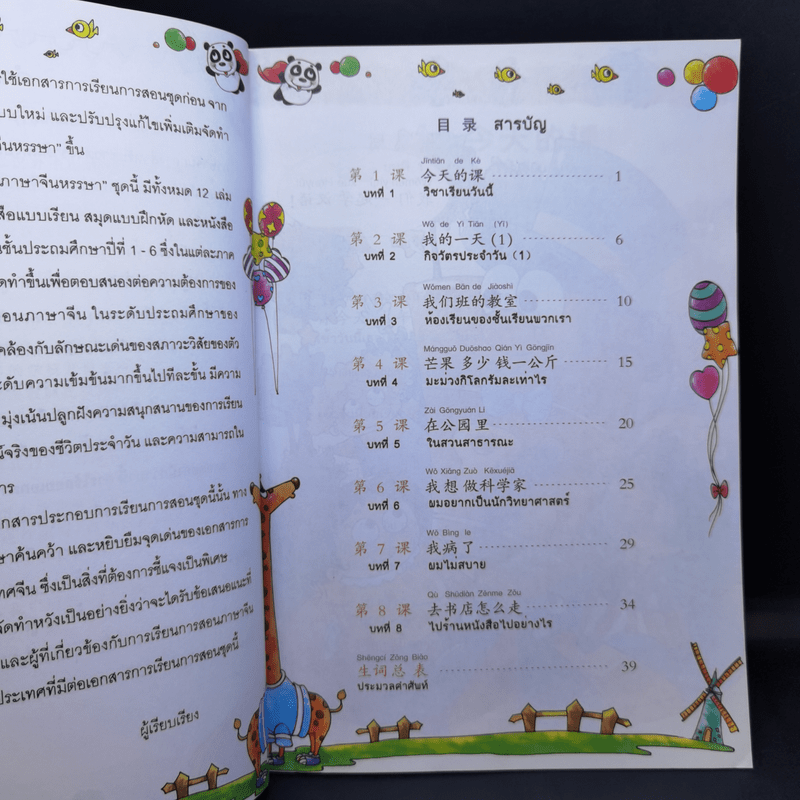 ใช้เอกสารการเรียนการสอนชุดก่อน จาก
แบบใหม่ และปรับปรุงแก้ไขเพิ่มเติมจัดทำ
จีนหรรษา" ขึ้น
ภาษาจีนหรรษา" ชุดนี้ มีทั้งหมด 12 เล่ม
สือแบบเรียน สมุดแบบฝึกหัด และหนังสือ
นชั้นประถมศึกษาปีที่ 1 - 6 ซึ่งในแต่ละภาค
ัดทำขึ้นเพื่อตอบสนองต่อความต้องการของ
อนภาษาจีน ในระดับประถมศึกษาของ
คล้องกับลักษณะเด่นของสภาวะวิสัยของตัว
ะดับความเข้มข้นมากขึ้นไปทีละชั้น มีความ
มุ่งเน้นปลูกฝังความสนุกสนานของการเรียน
น์จริงของชีวิตประจำวัน และความสามารถใน
การ
อกสารประกอบการเรียนการสอนชุดนี้นั้น ทาง
ษาค้นคว้า และหยิบยืมจุดเด่นของเอกสารการ
ทศจีน ซึ่งเป็นสิ่งที่ต้องการชี้แจงเป็นพิเศษ
จัดทำหวังเป็นอย่างยิ่งว่าจะได้รับข้อเสนอแนะที่
และผู้ที่เกี่ยวข้องกับการเรียนการสอนภาษาจีน
ประเทศที่มีต่อเอกสารการเรียนการสอนชุดนี้
ผู้เรียบเรียง
目 录 สารบัญ
Jīntiān de Kè
第 1 课 今天的课 1
บทที่ 1 วิชาเรียนวันนี้
Wǒ de Yì Tiān (Yī)
第 2 课 我的一天 (1) 6
บทที่ 2 กิจวัตรประจำวัน (1)
Wǒmen Bān de Jiàoshì
第 3 课 我们班的教室 10
บทที่ 3 ห้องเรียนของชั้นเรียนพวกเรา
Mángguǒ Duōshao Qián Yì Gōngjīn
第 4 课 芒果 多少 钱一公斤 15
บทที่ 4 มะม่วงกิโลกรัมละเท่าไร
Zài Gōngyuán Lǐ
第 5 课 在公园里 20
บทที่ 5 ในสวนสาธารณะ
Wǒ Xiǎng Zuò Kēxuéjiā
第 6 课 我想做科学家 25
บทที่ 6 ผมอยากเป็นนักวิทยาศาสตร์
Wǒ Bìng le
第 7 课 我病了 29
บทที่ 7 ผมไม่สบาย
Qù Shūdiàn Zěnme Zǒu
第 8 课 去书店怎么走 34
บทที่ 8 ไปร้านหนังสือไปอย่างไร
Shēngcí Zǒng Biǎo
生词总 表 39
ประมวลคำศัพท์